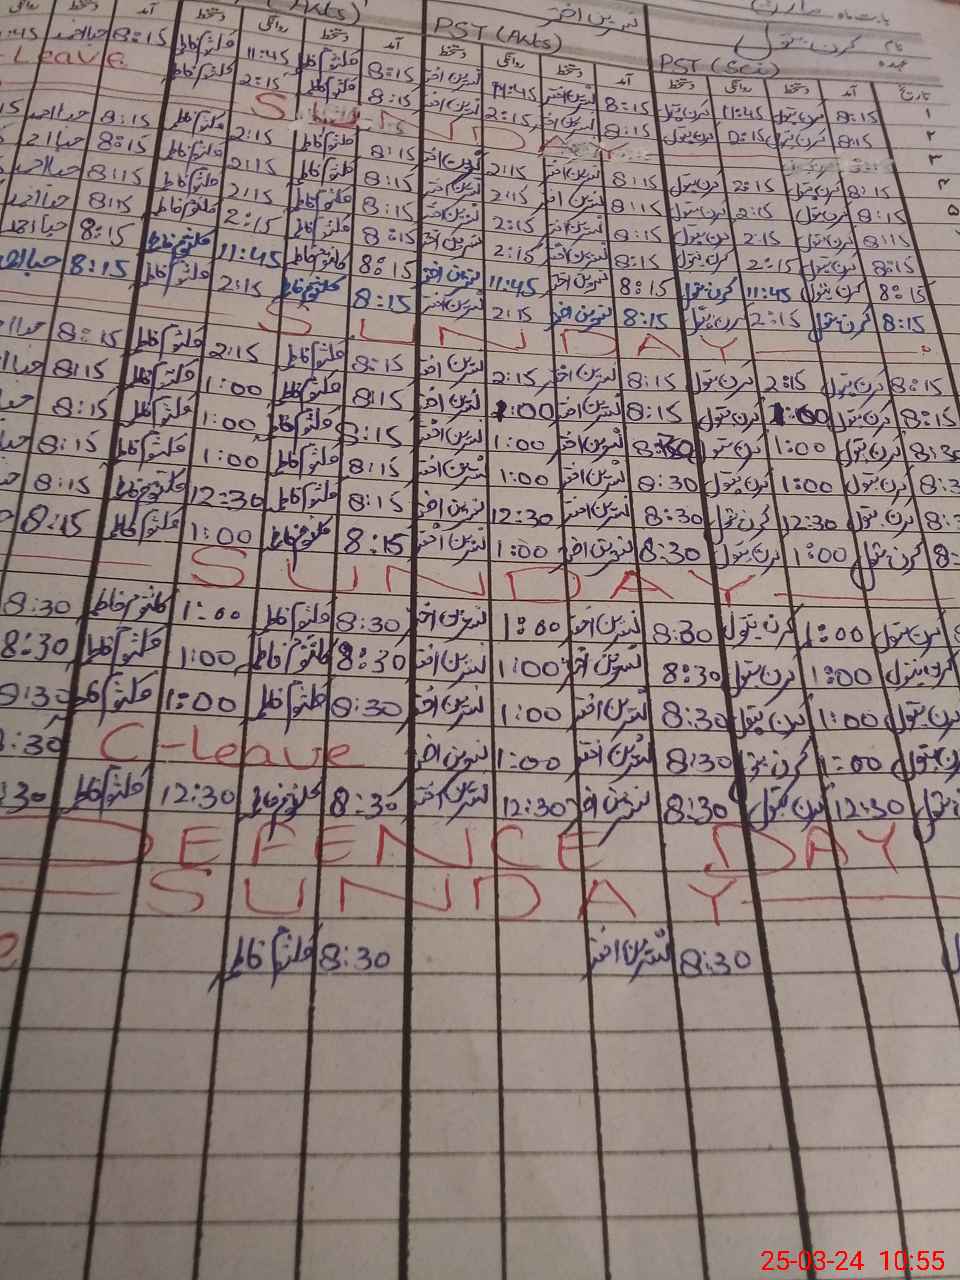 بابت ماہ مارچ
نام کرن بتول نسرین اختر
عہدہ PST (Sci) PST (Arts) (Arts)
تاریخ آمد دستخط روانگی دستخط آمد دستخط روانگی دستخط آمد دستخط روانگی دستخط آمد دستخط روانگی
۱ 8:15 کرن بتول 11:45 کرن بتول 8:15 نسرین اختر 11:45 نسرین اختر 8:15 کلثوم فاطمہ 11:45 کلثوم فاطمہ 8:15
۲ 8:15 کرن بتول 2:15 کرن بتول 8:15 نسرین اختر 2:15 نسرین اختر 8:15 کلثوم فاطمہ 2:15 کلثوم فاطمہ Leave
۳ SUNDAY
۴ 8:15 کرن بتول 2:15 کرن بتول 8:15 نسرین اختر 2:15 نسرین اختر 8:15 کلثوم فاطمہ 2:15 کلثوم فاطمہ 8:15
۵ 8:15 کرن بتول 2:15 کرن بتول 8:15 نسرین اختر 2:15 نسرین اختر 8:15 کلثوم فاطمہ 2:15 کلثوم فاطمہ 8:15
8:15 کرن بتول 2:15 کرن بتول 8:15 نسرین اختر 2:15 نسرین اختر 8:15 کلثوم فاطمہ 2:15 کلثوم فاطمہ 8:15
8:15 کرن بتول 2:15 کرن بتول 8:15 نسرین اختر 2:15 نسرین اختر 8:15 کلثوم فاطمہ 2:15 کلثوم فاطمہ 8:15
8:15 کرن بتول 11:45 کرن بتول 8:15 نسرین اختر 11:45 نسرین اختر 8:15 کلثوم فاطمہ 11:45 کلثوم فاطمہ 8:15
8:15 کرن بتول 2:15 کرن بتول 8:15 نسرین اختر 2:15 نسرین اختر 8:15 کلثوم فاطمہ 2:15 کلثوم فاطمہ 8:15
SUNDAY
8:15 کرن بتول 2:15 کرن بتول 8:15 نسرین اختر 2:15 نسرین اختر 8:15 کلثوم فاطمہ 2:15 کلثوم فاطمہ 8:15
8:15 کرن بتول 1:00 کرن بتول 8:15 نسرین اختر 1:00 نسرین اختر 8:15 کلثوم فاطمہ 1:00 کلثوم فاطمہ 8:15
کرن بتول 1:00 کرن بتول 8:30 نسرین اختر 1:00 نسرین اختر 8:15 کلثوم فاطمہ 1:00 کلثوم فاطمہ 8:15
کرن بتول 1:00 کرن بتول 8:30 نسرین اختر 1:00 نسرین اختر 8:15 کلثوم فاطمہ 1:00 کلثوم فاطمہ 8:15
کرن بتول 12:30 کرن بتول 8:30 نسرین اختر 12:30 نسرین اختر 8:15 کلثوم فاطمہ 12:30 کلثوم فاطمہ 8:15
کرن بتول 1:00 کرن بتول 8:30 نسرین اختر 1:00 نسرین اختر 8:15 کلثوم فاطمہ 1:00 کلثوم فاطمہ 8:15
SUNDAY
کرن بتول 1:00 کرن بتول 8:30 نسرین اختر 1:00 نسرین اختر 8:30 کلثوم فاطمہ 1:00 کلثوم فاطمہ 8:30
کرن بتول 1:00 کرن بتول 8:30 نسرین اختر 1:00 نسرین اختر 8:30 کلثوم فاطمہ 1:00 کلثوم فاطمہ 8:30
کرن بتول 1:00 کرن بتول 8:30 نسرین اختر 1:00 نسرین اختر 8:30 کلثوم فاطمہ 1:00 کلثوم فاطمہ 8:30
1:00 کرن بتول 8:30 نسرین اختر 1:00 نسرین اختر C-Leave 8:30
12:30 کرن بتول 8:30 نسرین اختر 12:30 نسرین اختر 8:30 کلثوم فاطمہ 12:30 کلثوم فاطمہ :30
DEFENCE DAY
SUNDAY
8:30 نسرین اختر 8:30 کلثوم فاطمہ
25-03-24 10:55